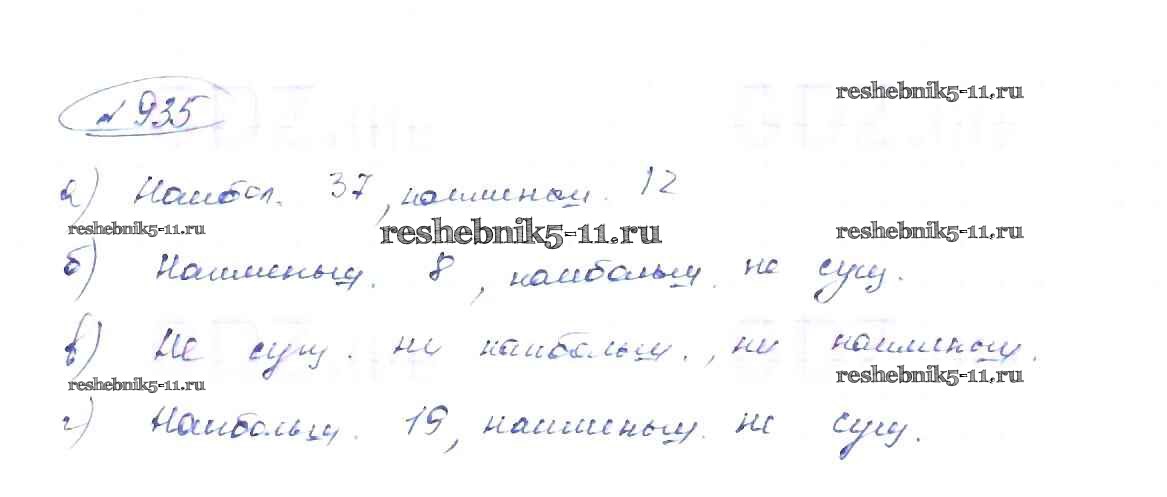 reshebnik5-11.ru
№ 935
а) Наибол. 37, наименьш. 12
reshebnik5-11.ru reshebnik5-11.ru reshebnik5-11.ru
б) Наименьш. 8, наибольш. не сущ.
в) Не сущ. ни наибольш., ни наименьш.
reshebnik5-11.ru reshebnik5-11.ru
г) Наибольш. 19, наименьш. не сущ.